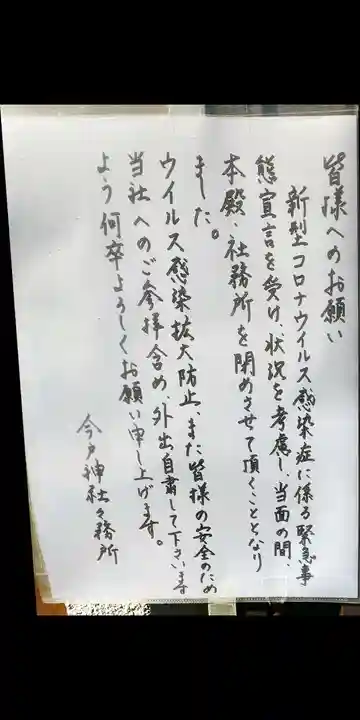 皆様へのお願い
新型コロナウイルス感染症に係る緊急事
態宣言を受け、状況を考慮し、当面の間、
本殿、社務所を閉めさせて頂くこととなり
ました。
ウイルス感染拡大防止、また皆様の安全のため
当社へのご参拝含め、外出自粛して下さいます
よう何卒よろしくお願い申し上げます。
今戸神社々務所